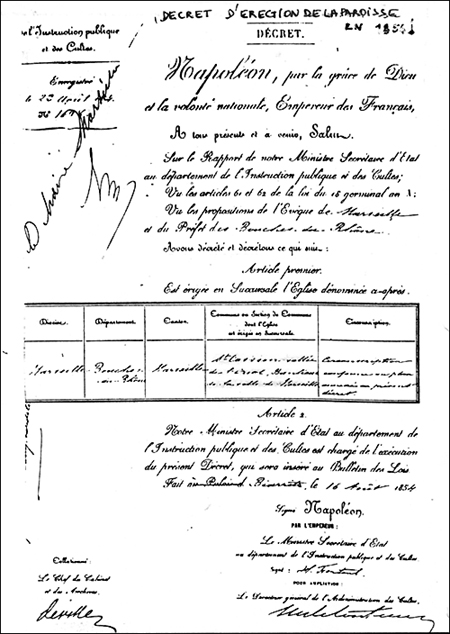 DECRET D'ERECTION DE LA PAROISSE
EN 1854
DÉCRET.
de l'Instruction publique
et des Cultes.
Enregistré
le 23 Août
Napoléon, par la grâce de Dieu
et la volonté nationale, Empereur des Français,
A tous présents et à venir, Salut.
Sur le Rapport de notre Ministre Secrétaire d'État
au département de l'Instruction publique et des Cultes;
Vu les articles 61 et 62 de la loi du 18 germinal an X;
Vu les propositions de l'Evêque de Marseille
et du Préfet des Bouches du Rhône
Avons décrété et décrétons ce qui suit:
Article premier.
Est érigée en Succursale l'Eglise dénommée ci-après.
Diocèse. Département. Canton. Commune ou Section de Commune dont l'Eglise est érigée en Succursale Circonscription.
Marseille Bouches-du-Rhône Marseille
Circonscription conforme au plan annexé au présent décret.
Article 2.
Notre Ministre Secrétaire d'État au département
de l'Instruction publique et des Cultes est chargé de l'exécution
du présent Décret, qui sera inséré au Bulletin des Lois
Fait au Palais Biarritz, le 16 Août 1854
Signé Napoléon
PAR L'EMPEREUR:
Le Ministre Secrétaire d'État
au département de l'Instruction publique et des Cultes
Signé: H. Fortoul
POUR AMPLIATION:
Le Directeur général de l'Administration des Cultes
Collationné:
Le Chef du Cabinet
et des Archives